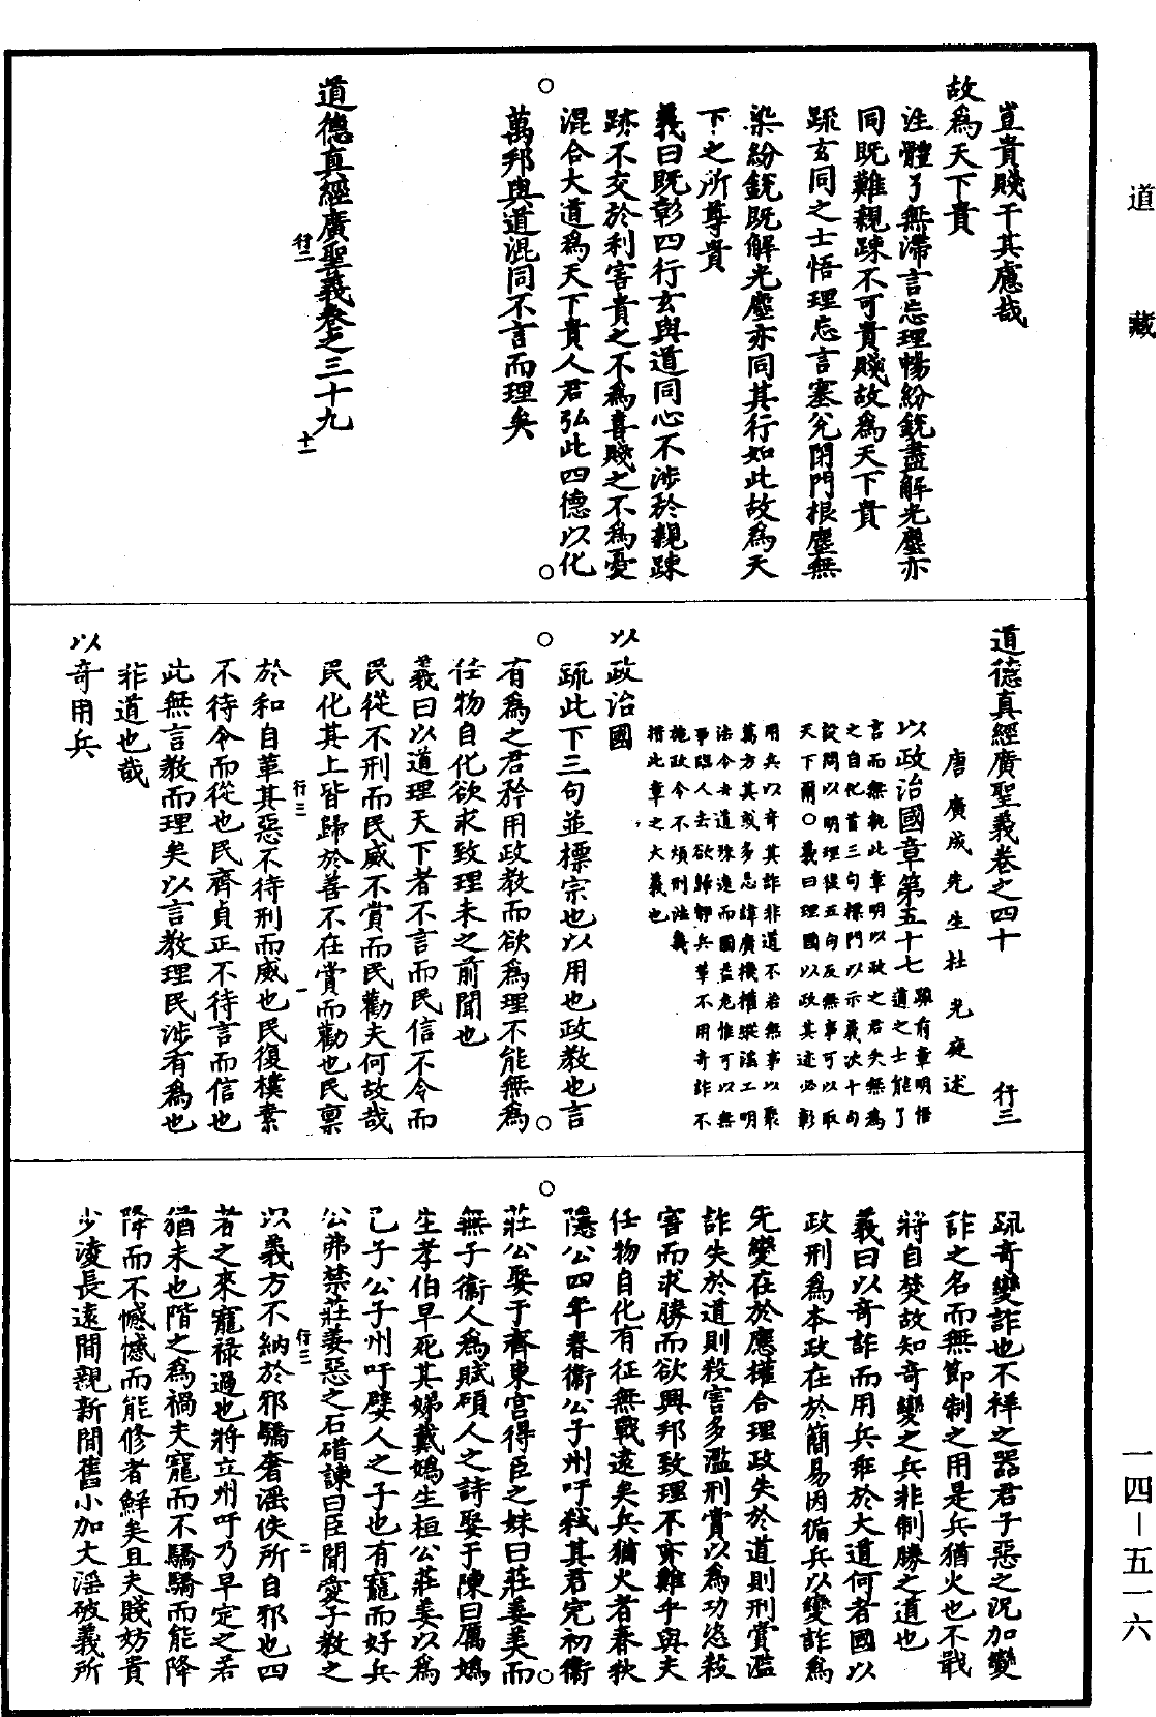 道藏
一四—五一六
豈貴賤干其應哉
故爲天下貴
注體了無滯言忘理暢紛銳盡解光塵亦
同既難親踈不可貴賤故爲天下貴
疏玄同之士悟理忘言塞兌閉門根塵無
染紛銳既解光塵亦同其行如此故爲天
下之所尊貴
義曰既彰四行玄與道同心不涉於親踈
跡不交於利害貴之不爲喜賤之不爲憂
混合大道爲天下貴人君弘此四德以化
萬邦與道混同不言而理矣
道德真經廣聖義卷之三十九
行二
十一
道德真經廣聖義卷之四十
行三
唐廣成先生杜光庭述
以政治國章第五十七
疏前章明悟
道之士能了
言而無執此章明以政之君失無爲
之自化首三句標門以示義次十句
設問以明理後五句反無事可以取
天下爾○義曰理國以政其迹必彰
用兵以奇其詐非道不若無事以聚
萬方其或多忌諱廣機權縱滛工明
法令去道殊遠而國益危惟可以無
事臨人去欲歸靜兵革不用奇詐不
施政令不煩刑法義
措此章之大義也
以政治國
疏此下三句並標宗也以用也政教也言
有爲之君矜用政教而欲爲理不能無爲
任物自化欲求致理未之前聞也
義曰以道理天下者不言而民信不令而
民從不刑而民威不賞而民勸夫何故哉
民化其上皆歸於善不在賞而勸也民稟
行三
一
於和自革其惡不待刑而威也民復樸素
不待令而從也民齊貞正不待言而信也
此無言教而理矣以言教理民涉有爲也
非道也哉
以奇用兵
疏奇變詐也不祥之器君子惡之況加變
詐之名而無節制之用是兵猶火也不戢
將自焚故知奇變之兵非制勝之道也
義曰以奇詐而用兵乖於大道何者國以
政刑爲本政在於簡易因循兵以變詐爲
先變在於應權合理政失於道則刑賞濫
詐失於道則殺害多濫刑賞以爲功恣殺
害而求勝而欲興邦致理不亦難乎與夫
任物自化有征無戰遠矣兵猶火者春秋
隱公四年春衞公子州吁弑其君完初衞
莊公娶于齊東宮得臣之妹曰莊姜美而
無子衞人爲賦碩人之詩娶于陳曰厲嬀
生孝伯早死其娣戴嬀生桓公莊姜以爲
己子公子州吁嬖人之子也有寵而好兵
公弗禁莊姜惡之石碏諫曰臣聞愛子教之
行三
二
以義方不納於邪驕奢滛佚所自邪也四
者之來寵祿過也將立州吁乃早定之若
猶未也階之爲禍夫寵而不驕驕而能降
降而不憾憾而能修者鮮矣且夫賤妨貴
少淩長遠間親新間舊小加大滛破義所